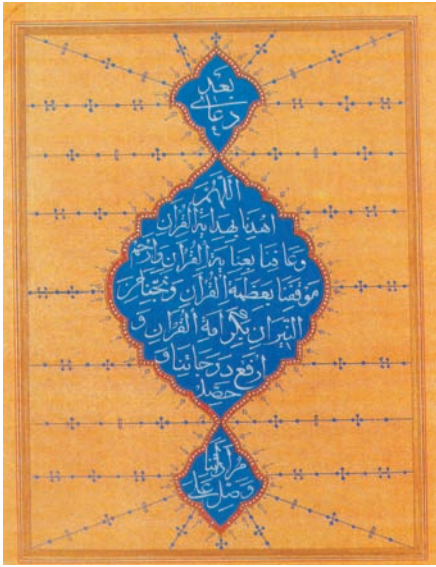 بعد
دعای
اللهم
اهدنا بهدایة القرآن
وعافنا بعنایة القرآن وارحم
موقفنا بعظمة القرآن ونجنا من
النیران بکرامة القرآن و
ارفع درجاتنا و
حصل
مراداتنا
وصل علی